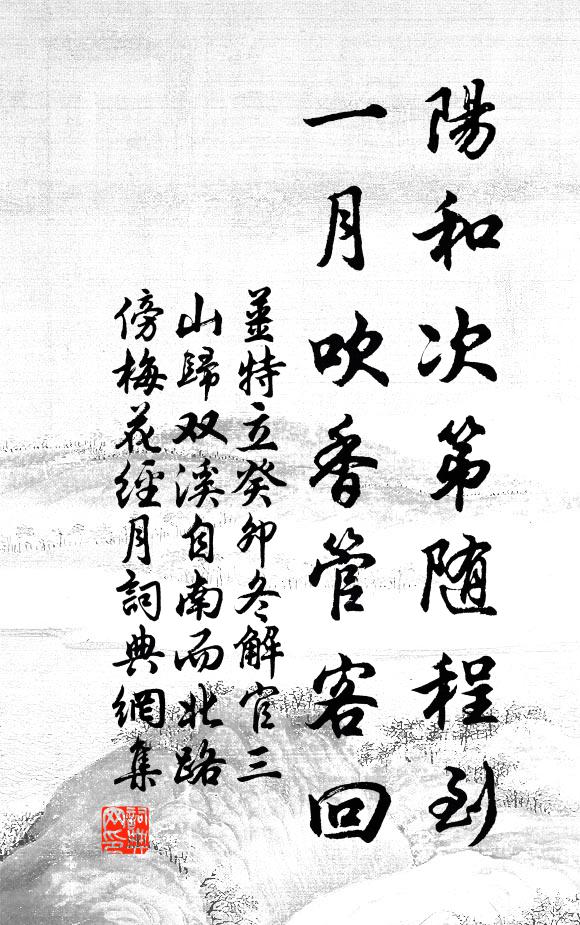 陽和次第随程到
一月吹香管客回
姜特立癸卯冬解官三
山歸双溪自南而北路
傍梅花經月詞典網集